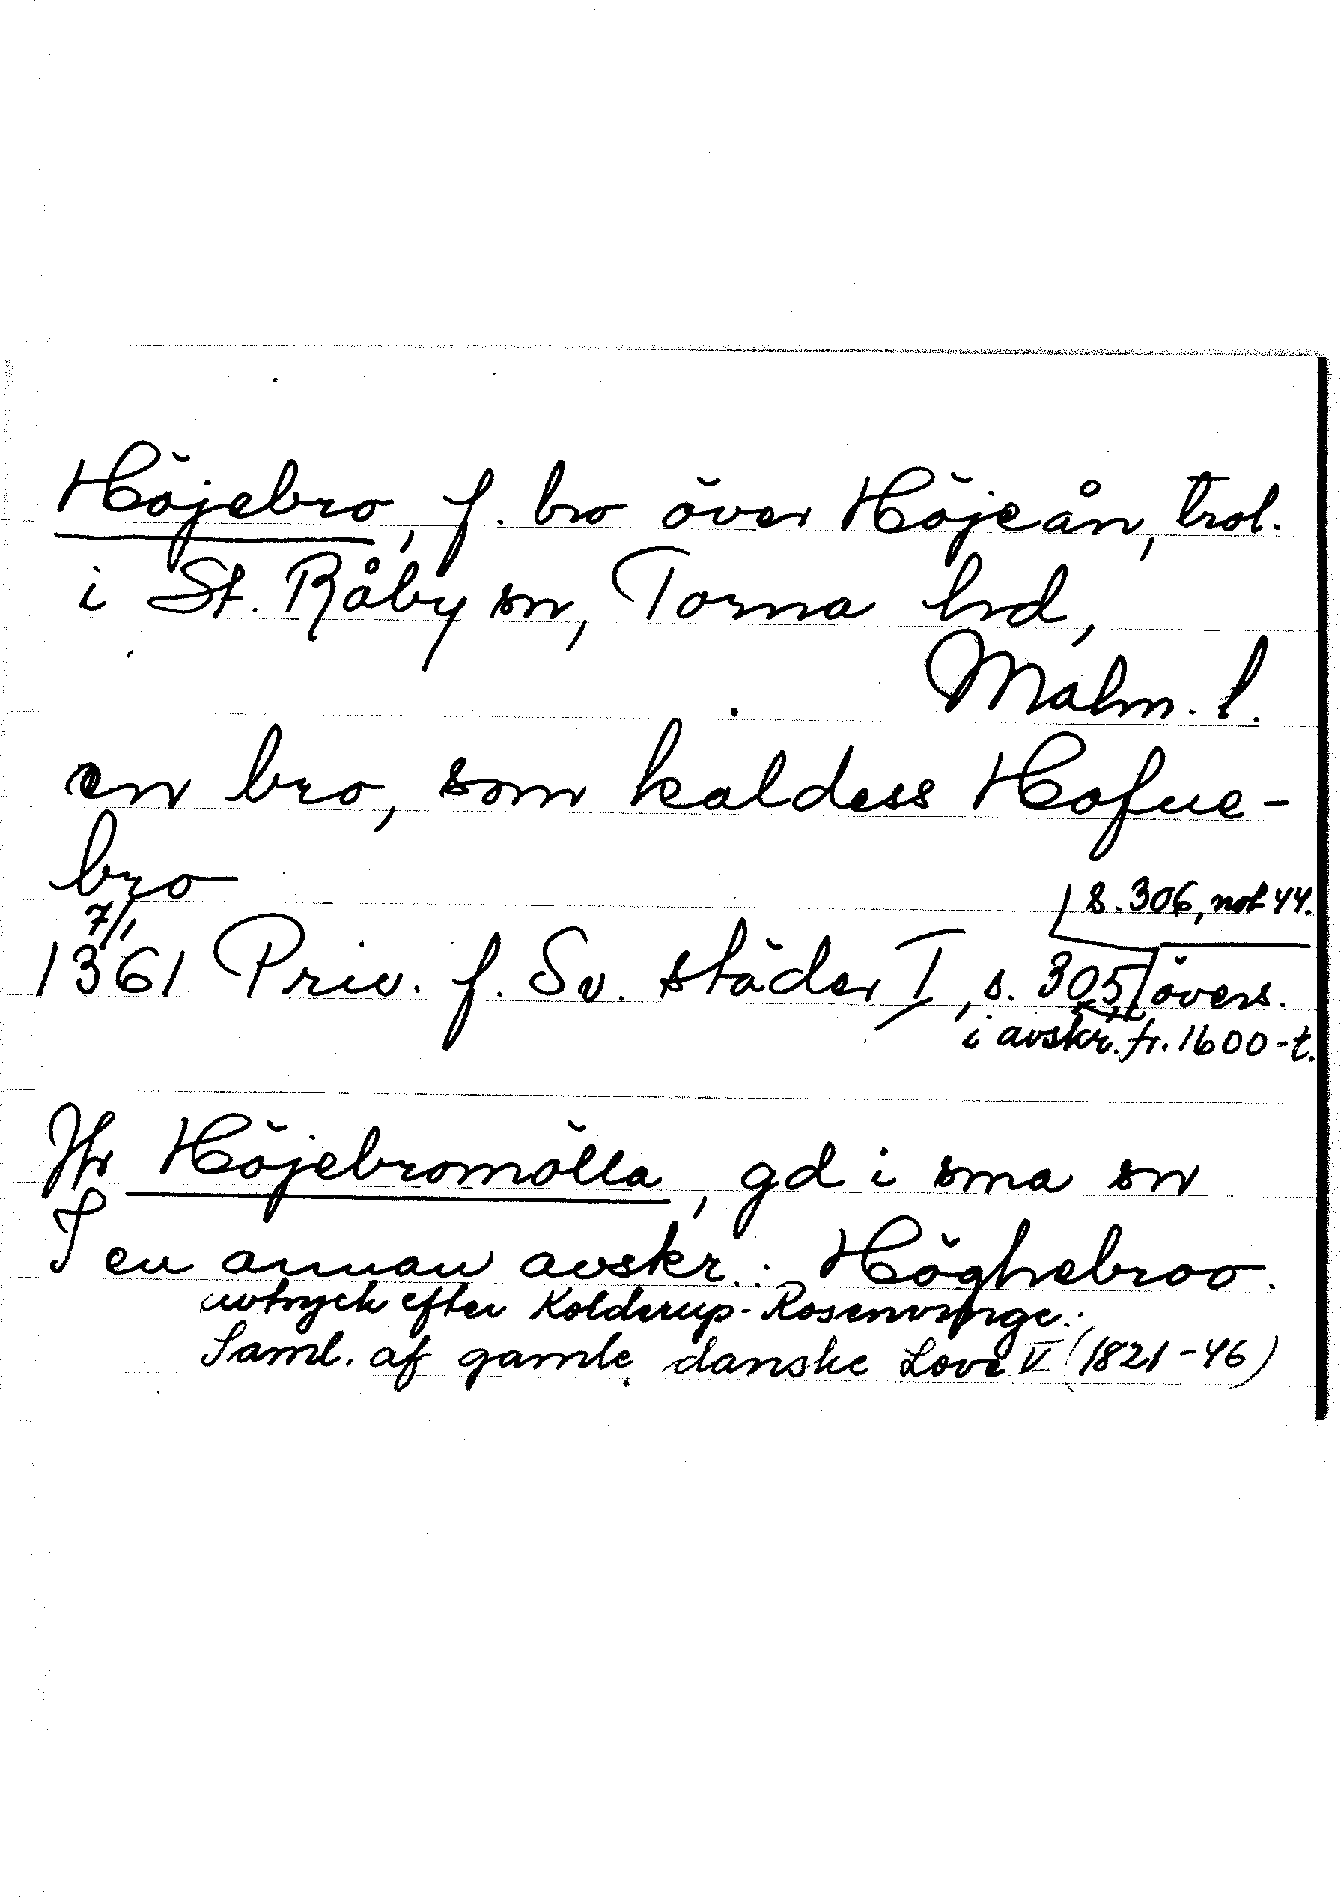 Höjebro, f. bro över Höjeån, trol.
i St. Råby sn, Torna hd,
Malm. l.
en bro, som kaldess Hofue-
bro
s. 306, not 44.
7/1
1361 Priv. f. Sv. städer I, s. 305 övers.
i avskr. fr. 1600-t.
Jfr Höjebromölla, gd i sma sn
I en annan avskr.: Höghebroo.
avtryck efter Kolderup-Rosenvinge:
Saml. af gamle danske Love V (1821-46)